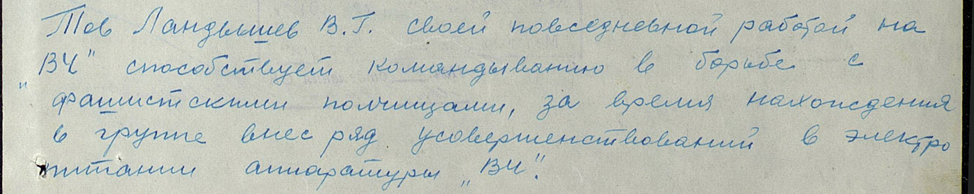 Тов Ландышев В.Г. своей повседневной работой на
„ВЧ" способствует командыванию в борьбе с
фашистскими полчищами, за время нахождения
в группе внес ряд усовершенствований в электро
питании аппаратуры „ВЧ".